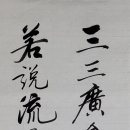 三三廣
若説流